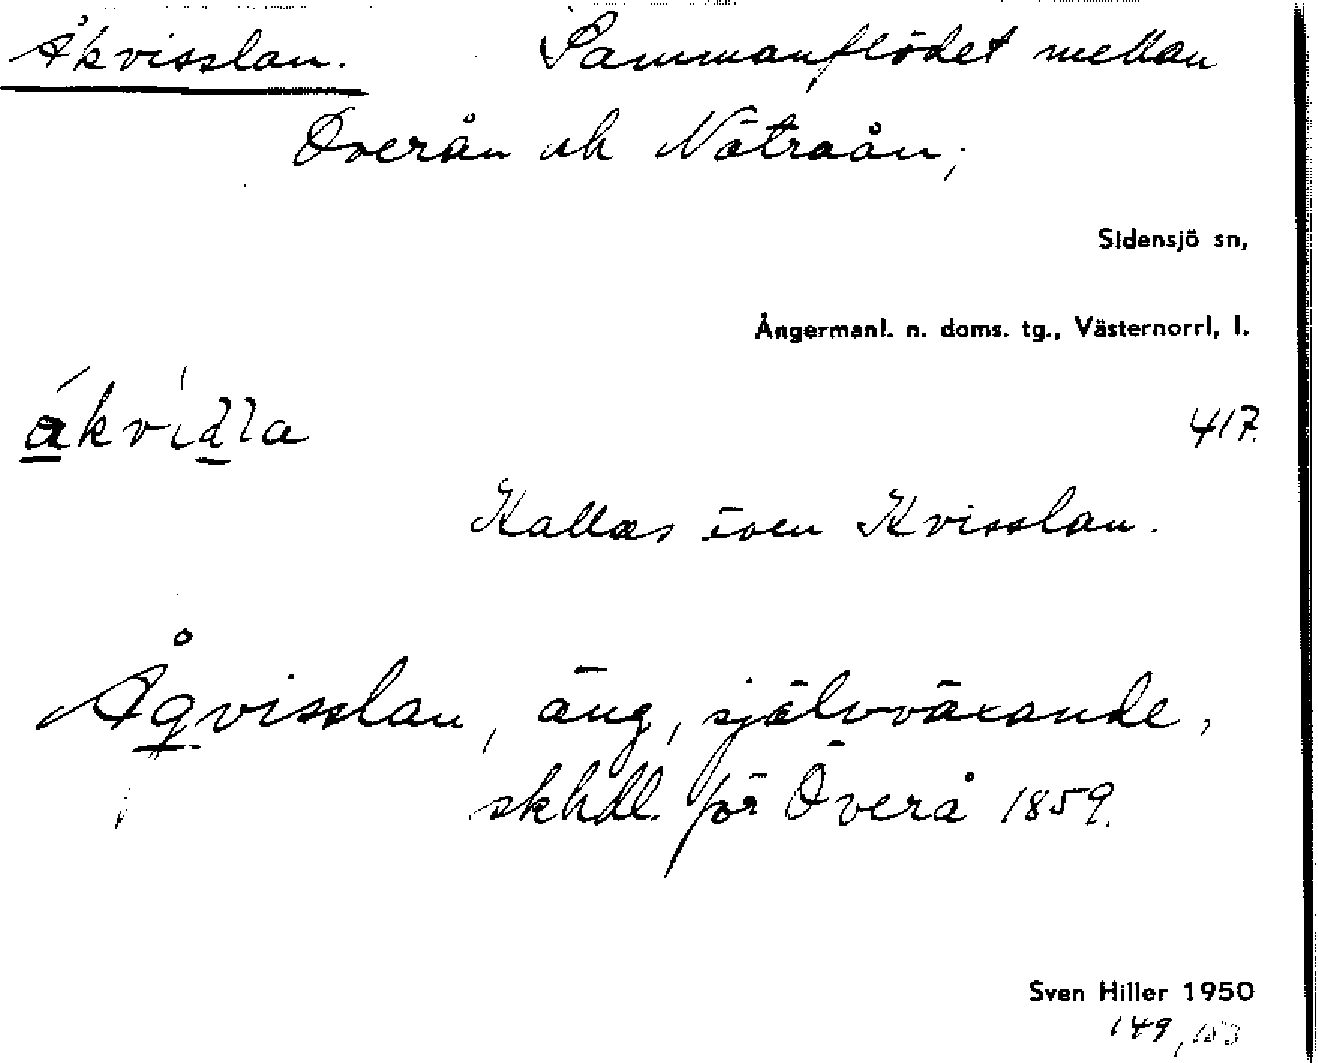 Åkvisslan. Sammanflödet mellan
Överån och Nätraån;
Sidensjö sn,
Ångermanl. n. doms. tg., Västernorrl. l.
417.
Kallas även Kvisslan.
Åqvisslan, äng, självväxande,
skhdl. för Överå 1859.
Sven Hiller 1950
149, 153